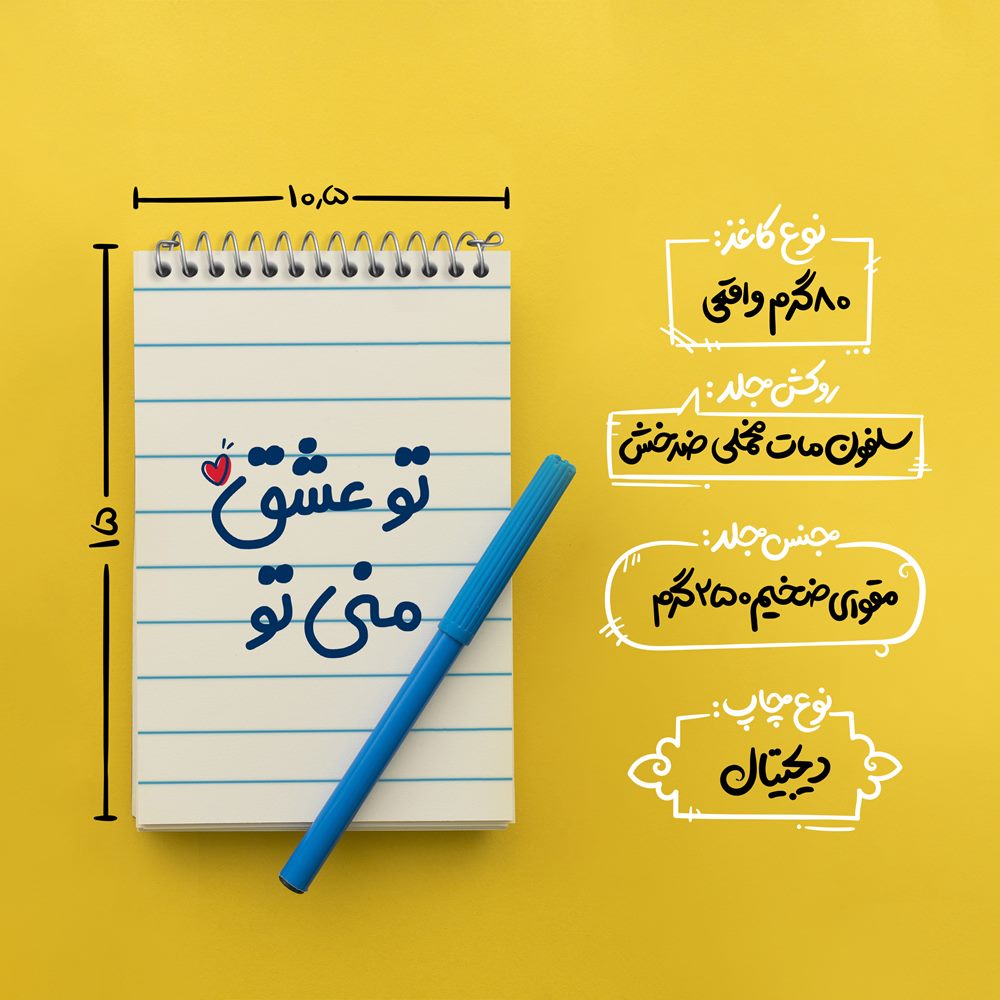 ۱۰٫۵
۱۵
تو عشق
منی تو
نوع کاغذ:
۸۰گرم واقعی
روکش جلد:
سلفون مات مخملی ضدخش
جنس جلد:
مقوای ضخیم ۲۵۰گرم
نوع چاپ:
دیجیتال